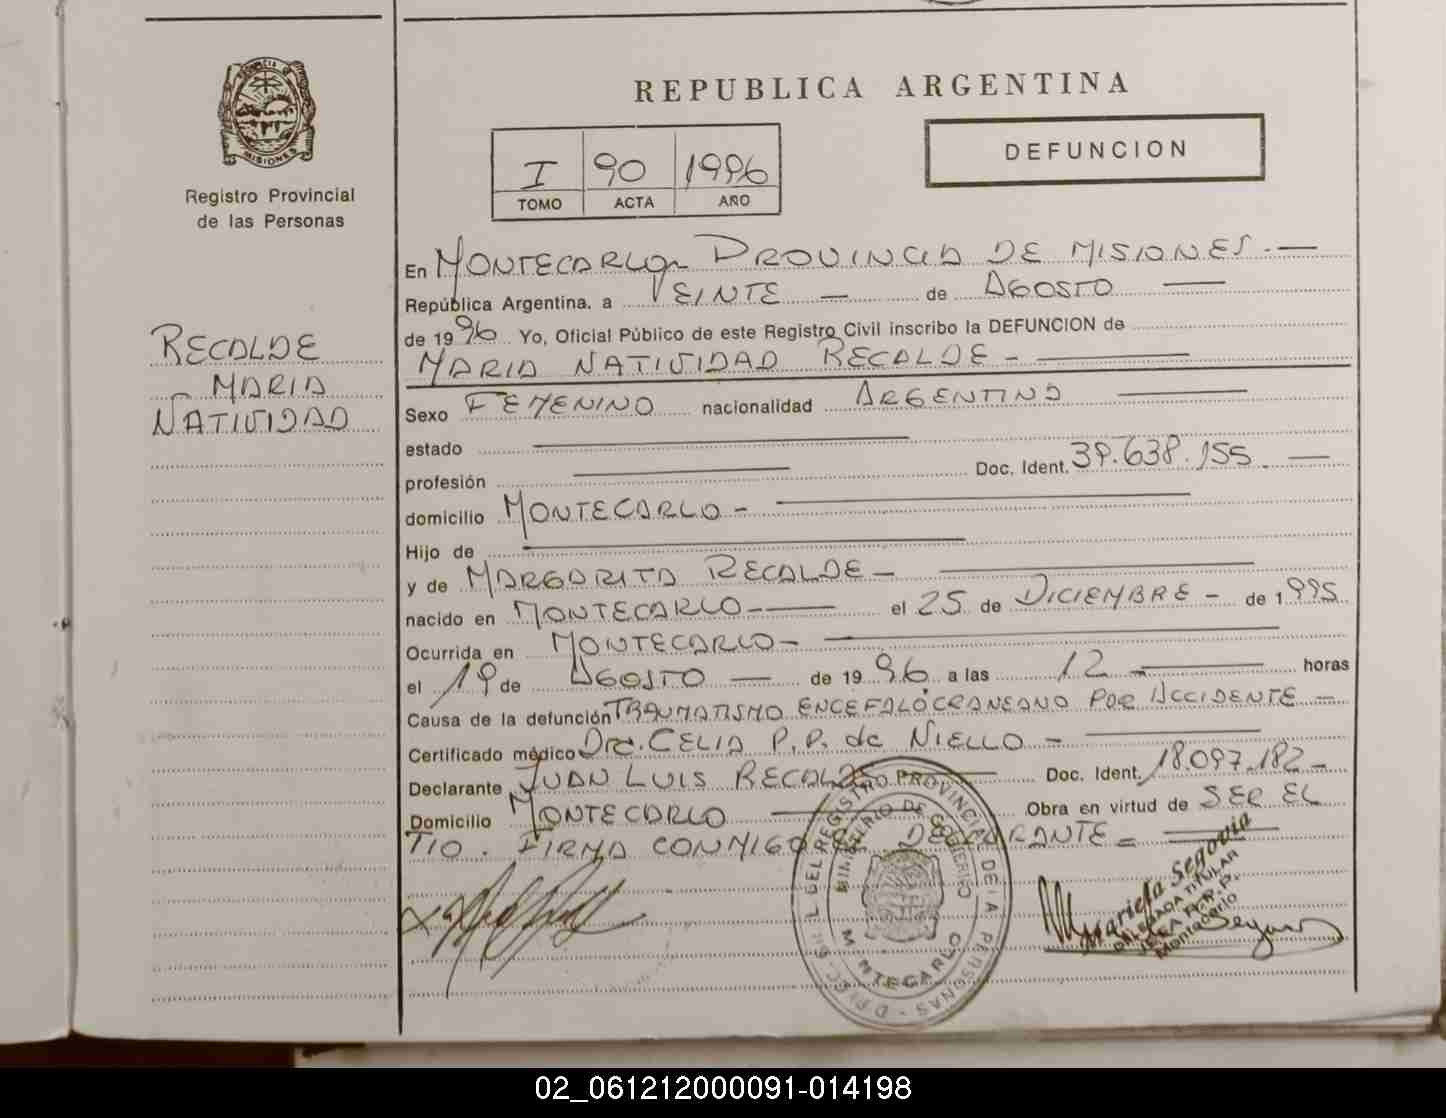 PROVINCIA DE
MISIONES
Registro Provincial
de las Personas
REPUBLICA ARGENTINA
DEFUNCION
I 90 1996
TOMO ACTA AÑO
RECALDE
MARIA
NATIVIDAD
En MONTECARLO PROVINCIA DE MISIONES.—
República Argentina. a VEINTE — de AGOSTO —
de 1996 Yo, Oficial Público de este Registro Civil inscribo la DEFUNCION de
MARIA NATIVIDAD RECALDE - —
Sexo FEMENINO nacionalidad ARGENTINA —
estado —
profesión — Doc. Ident. 39.638.155. —
domicilio MONTECARLO - —
Hijo de —
y de MARGARITA RECALDE - —
nacido en MONTECARLO - — el 25 de DICIEMBRE - de 1995
Ocurrida en MONTECARLO - —
el 19 de AGOSTO — de 1996 a las 12 — horas
Causa de la defunción TRAUMATISMO ENCEFALOCRANEANO POR ACCIDENTE —
Certificado médico Dra. CELIA P. P. de NIELLO - —
Declarante JUAN LUIS RECALDE — Doc. Ident. 18.097.182 -
Domicilio MONTECARLO — Obra en virtud de SER EL
TIO. FIRMA CONMIGO EL DECLARANTE = —
DEL REGISTRO PROVINCIAL DE LA PERSONAS
MINISTERIO DE GOBIERNO
MONTECARLO
Mariela Segovia
DELEGADA TITULAR
Montecarlo
02_061212000091-014198